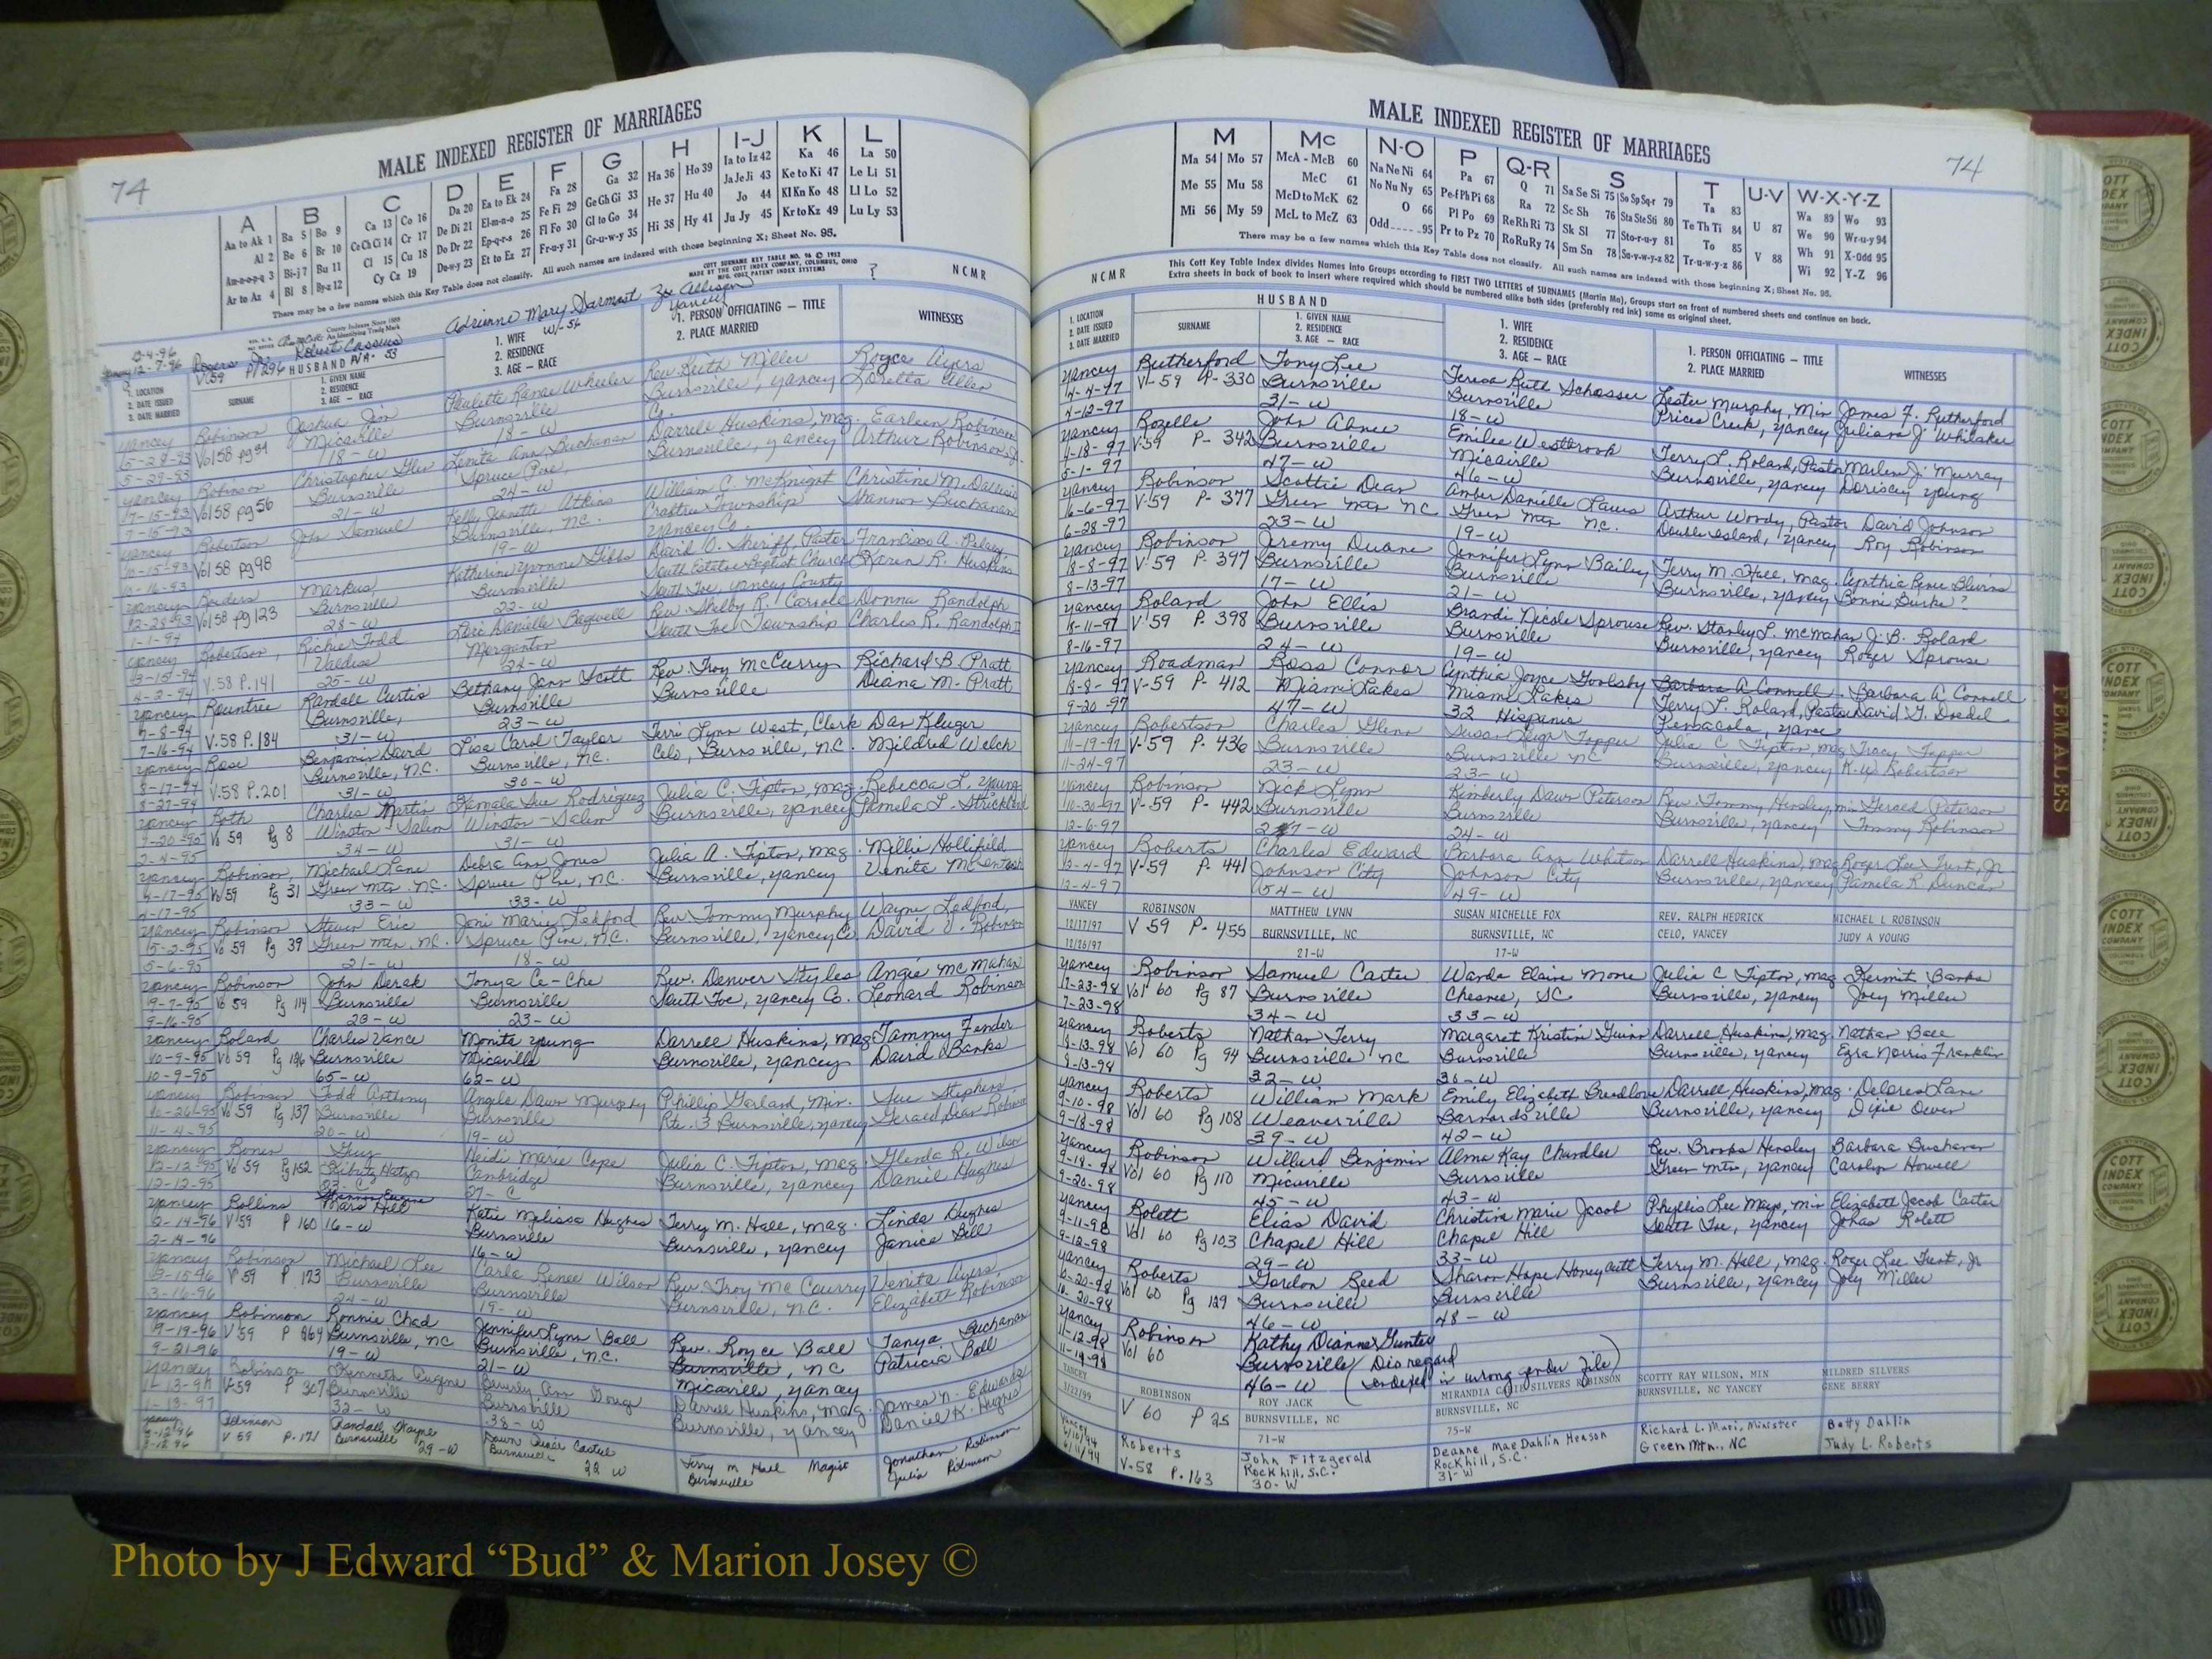 MALE INDEXED REGISTER OF MARRIAGES
74
A B C D E F G H I-J K L
Aa to Ak 1 Ba 5 Bo 9 Ca 13 Co 16 Da 20 Ea to Ek 24 Fa 28 Ga 32 Ha 36 Ho 39 Ia to Iz 42 Ka 46 La 50
Al 2 Be 6 Br 10 Ce Ch Ci 14 Cr 17 De Di 21 El-m-n-o 25 Fe Fi 29 Ge Gh Gi 33 He 37 Hu 40 Ja Je Ji 43 Ke to Ki 47 Le Li 51
Am-n-o-p-q 3 Bi-j 7 Bu 11 Cl 15 Cu 18 Do Dr 22 Ep-q-r-s 26 Fl Fo 30 Gl to Go 34 Hi 38 Hy 41 Jo 44 Kl Kn Ko 48 Ll Lo 52
Ar to Az 4 Bl 8 By-z 12 Cy Cz 19 Du-w-y 23 Et to Ez 27 Fr-u-y 31 Gr-u-w-y 35 Ju Jy 45 Kr to Kz 49 Lu Ly 53
There may be a few names which this Key Table does not classify. All such names are indexed with those beginning X; Sheet No. 95.
COTT SURNAME KEY TABLE NO. 96 © 1952
MADE BY THE COTT INDEX COMPANY, COLUMBUS, OHIO
MFG. COTT PATENT INDEX SYSTEMS
NCMR
Adrienne Mary
V-59 P/296
W-56
Yancey
HUSBAND
1. LOCATION
2. DATE ISSUED
3. DATE MARRIED
SURNAME
1. GIVEN NAME
2. RESIDENCE
3. AGE — RACE
1. WIFE
2. RESIDENCE
3. AGE — RACE
1. PERSON OFFICIATING — TITLE
2. PLACE MARRIED
WITNESSES
Yancey Robinson Joshua Jim Paulette Renae Wheeler Rev. Keith Miller Royce Ayers
Vol 58 pg 54 Micaville Burnsville Burnsville, Yancey Co. Loretta Allen
5-29-93 18-W 18-W
Yancey Robinson Christopher Glen Lenita Ann Buchanan Darrell Huskins, Mag. Earleen Robinson
7-15-93 Vol 58 pg 56 Burnsville Spruce Pine Burnsville, Yancey Arthur Robinson, Jr.
7-15-93 21-W 24-W
Yancey Robertson John Samuel Kelly Jeanette Atkins William C. McKnight
10-15-93 Vol 58 pg 98 Burnsville, NC. Crabtree Township Shannon Buchanan
19-W Yancey Co.
Yancey Markus Katherine Yvonne Gibbs David O. Sheriff, Pastor
12-28-93 Vol 58 pg 123 Burnsville Burnsville Karen R. Huskins
1-1-94 28-W 22-W South Toe, Yancey County
Yancey Robertson, Richie Todd Lori Danielle Bagwell Rev. Shelby R. Donna Randolph
V.58 P.141 Valdese Morganton South Toe Township Charles R. Randolph
4-2-94 25-W 24-W
Yancey Rountree Randall Curtis Bethany Jann Scott Rev. Troy McCurry Richard B. Pratt
7-8-94 V.58 P.184 Burnsville, Burnsville Burnsville Deana M. Pratt
7-16-94 31-W 23-W
Yancey Rose Benjamin David Lisa Carol Taylor Terri Lynn West, Clerk Dan Kluger
8-17-94 V.58 P.201 Burnsville, N.C. Burnsville, N.C. Celo, Burnsville, N.C. Mildred Welch
8-27-94 31-W 30-W
Yancey Roth Charles Martin Pamala Sue Rodriguez Julia C. Tipton, Mag. Rebecca L. Young
Vo 59 Pg 8 Winston-Salem Winston-Salem Burnsville, Yancey Pamela L. Strickland
2-4-95 34-W 31-W
Yancey Robinson, Michael Lane Debra Ann Jones Julia A. Tipton, Mag. Millie Hollifield
4-17-95 Vo 59 Pg 31 Green Mtn. N.C. Spruce Pine, N.C. Burnsville, Yancey Venita McIntosh
4-17-95 33-W 33-W
Yancey Robinson Steven Eric Joni Marie Ledford Rev. Tommy Murphy Wayne Ledford,
5-2-95 Vo 59 Pg 39 Green Mtn. N.C. Spruce Pine, N.C. Burnsville, Yancey Co. David J. Robinson
5-6-95 21-W 18-W
Yancey Robinson John Derek Tonya Ce-Che Rev. Denver Styles Angie McMahan
9-7-95 Vo 59 Pg 114 Burnsville Burnsville South Toe, Yancey Co. Leonard Robinson
9-16-95 23-W 23-W
Yancey Roland Charles Vance Monita Young Darrell Huskins, Mag Tammy Fender
10-9-95 Vo 59 Pg 126 Burnsville Micaville Burnsville, Yancey David Banks
10-9-95 65-W 62-W
Yancey Robinson Todd Anthony Angela Dawn Murphy Phillip Garland, Min. Sue Stephens
10-26-95 Vo 59 Pg 137 Burnsville Burnsville Rte. 3 Burnsville, Yancey Gerald Dean Robinson
11-4-95 20-W 19-W
Yancey Ronen Guy Heidi Marie Cope Julia C. Tipton, Mag. Glenda R. Wilson
12-12-95 Vo 59 Pg 152 Kibutz Hatzor Cambridge Burnsville, Yancey Daniel Hughes
12-12-95 23-C 27-C
Yancey Rollins Shannon Eugene Katie Melissa Hughes Terry M. Hall, Mag. Linda Hughes
2-14-96 V 59 P 160 Mars Hill Burnsville Burnsville, Yancey Janice Bell
2-14-96 16-W 16-W
Yancey Robinson Michael Lee Carla Renee Wilson Rev. Troy McCourry Venita Ayers
3-15-96 V 59 P 173 Burnsville Burnsville Burnsville, N.C. Elizabeth Robinson
3-16-96 24-W 19-W
Yancey Robinson Ronnie Chad Jennifer Lynn Ball Rev. Royce Ball Tanya Buchanan
9-19-96 V 59 P 264 Burnsville, NC Burnsville, N.C. Burnsville, NC Patricia Ball
9-21-96 19-W 21-W Micaville, Yancey
Yancey Robinson Kenneth Eugene Beverly Ann Doug Darrell Huskins, Mag. James N. Edwards
1-13-97 V-59 P 307 Burnsville Burnsville Burnsville, Yancey Daniel K. Hughes
1-13-97 32-W 38-W
Yancey Robinson Randall Wayne Dawn Terry M Hall Magist Jonathan Robinson
V 59 P. 171 Burnsville 29-W Burnsville 22 W Burnsville Julia Robinson
MALE INDEXED REGISTER OF MARRIAGES
74
M Mc N-O P Q-R S T U-V W-X-Y-Z
Ma 54 Mo 57 McA - McB 60 Na Ne Ni 64 Pa 67 Q 71 Sa Se Si 75 So Sp Sq-r 79 Ta 83 U 87 Wa 89 Wo 93
Me 55 Mu 58 McC 61 No Nu Ny 65 Pe-f Ph Pi 68 Ra 72 Sc Sh 76 Sta Ste Sti 80 Te Th Ti 84 V 88 We 90 Wr-u-y 94
Mi 56 My 59 McD to McK 62 O 66 Pl Po 69 Re Rh Ri 73 Sk Sl 77 Sto-r-u-y 81 To 85 Wh 91 X-Odd 95
McL to McZ 63 Odd 95 Pr to Pz 70 Ro Ru Ry 74 Sm Sn 78 Su-v-w-y-z 82 Tr-u-w-y-z 86 Wi 92 Y-Z 96
There may be a few names which this Key Table does not classify. All such names are indexed with those beginning X; Sheet No. 95.
NCMR
This Cott Key Table Index divides Names into Groups according to FIRST TWO LETTERS of SURNAMES (Martin Ma), Groups start on front of numbered sheets and continue on back.
Extra sheets in back of book to insert where required which should be numbered alike both sides (preferably red ink) same as original sheet.
HUSBAND
1. LOCATION
2. DATE ISSUED
3. DATE MARRIED
SURNAME
1. GIVEN NAME
2. RESIDENCE
3. AGE — RACE
1. WIFE
2. RESIDENCE
3. AGE — RACE
1. PERSON OFFICIATING — TITLE
2. PLACE MARRIED
WITNESSES
Yancey Rutherford Tony Lee Teresa Ruth Schosser Lester Murphy, Min James F. Rutherford
4-4-97 V-59 P-330 Burnsville Burnsville Prices Creek, Yancey Juliana J. Whitaker
4-12-97 31-W 18-W
Yancey Rozelle John Abner Emilee Westbrook Terry L. Roland, Pastor Marlen J. Murray
4-18-97 V-59 P-342 Burnsville Micaville Burnsville, Yancey Doriscey Young
5-1-97 47-W 46-W
Yancey Robinson Scottie Dean Amber Danielle Laws Arthur Woody, Pastor David Johnson
6-6-97 V-59 P-377 Green Mtn NC Green Mtn NC. Double Island, Yancey Roy Robinson
6-28-97 23-W 19-W
Yancey Robinson Jeremy Duane Jennifer Lynn Bailey Terry M. Hall, Mag. Cynthia Renee Blevins
8-8-97 V-59 P-397 Burnsville Burnsville Burnsville, Yancey Bonnie Burke?
8-13-97 17-W 21-W
Yancey Roland John Ellis Brandi Nicole Sprouse Rev. Stanley L. McMahan J. B. Roland
8-11-97 V-59 P. 398 Burnsville Burnsville Burnsville, Yancey Roger Sprouse
8-16-97 24-W 19-W
Yancey Roadman Ross Connor Cynthia Joyce Goolsby Barbara A Connell Barbara A Connell
8-8-97 V-59 P-412 Miami Lakes Miami Lakes Terry L. Roland, Pastor David T. Dredel
9-20-97 47-W 32 Hispanic Pensacola, Yance
Yancey Robertson Charles Glenn Susan Leigh Tapper Julia C. Tipton, Mag Tracy Tapper
11-19-97 V-59 P-436 Burnsville Burnsville NC Burnsville, Yancey K.W. Robertson
11-24-97 23-W 23-W
Yancey Robinson Nick Lynn Kimberly Dawn Peterson Rev. Tommy Hensley, min Gerald Peterson
10-30-97 V-59 P-442 Burnsville Burnsville Burnsville, Yancey Tommy Robinson
12-6-97 27-W 24-W
Yancey Roberts Charles Edward Barbara Ann Whitson Darrell Huskins, Mag Roger Lee Trust, Jr
12-4-97 V-59 P-441 Johnson City Johnson City Burnsville, Yancey Pamela R. Duncan
12-4-97 54-W 49-W
YANCEY ROBINSON MATTHEW LYNN SUSAN MICHELLE FOX REV. RALPH HEDRICK MICHAEL L ROBINSON
12/17/97 V 59 P-455 BURNSVILLE, NC BURNSVILLE, NC CELO, YANCEY JUDY A YOUNG
12/26/97 21-W 17-W
Yancey Robinson Samuel Carter Wanda Elaine Moore Julia C Tipton, Mag Kermit Banks
7-23-98 Vol 60 Pg 87 Burnsville Chesnee, SC Burnsville, Yancey Joey Miller
7-23-98 34-W 33-W
Yancey Roberts Nathan Terry Margaret Kristin Guinn Darrell Huskins, Mag Nathan Ball
8-13-98 Vol 60 Pg 94 Burnsville NC Burnsville Burnsville, Yancey Ezra Norris Franklin
8-13-98 32-W 30-W
Yancey Roberts William Mark Emily Elizabeth Breedlove Darrell Huskins, Mag. Delores Lane
9-10-98 Vol 60 Pg 108 Weaverville Barnardsville Burnsville, Yancey Dixie Owen
9-18-98 39-W 42-W
Yancey Robinson Willard Benjamin Alma Kay Chandler Rev. Brooks Hensley Barbara Buchanan
9-18-98 Vol 60 Pg 110 Micaville Burnsville Green Mtn, Yancey Carolyn Howell
9-20-98 45-W 43-W
Yancey Rolett Elias David Christina Marie Jacob Phyllis Lee Mayo, min Elizabeth Jacob Carter
9-11-98 Vol 60 Pg 103 Chapel Hill Chapel Hill South Toe, Yancey Johas Rolett
9-12-98 29-W 33-W
Yancey Roberts Gordon Reed Sharon Hope Honeycutt Terry M. Hall, Mag. Roger Lee Trust, Jr
10-20-98 Vol 60 Pg 129 Burnsville Burnsville Burnsville, Yancey Joey Miller
10-20-98 46-W 48-W
Yancey Robinson Kathy Dianne Gunter
11-12-98 Vol 60 Burnsville (Disregard
11-14-98 46-W indexed in wrong gender file)
YANCEY ROBINSON ROY JACK MIRANDIA CASIE SILVERS ROBINSON SCOTTY RAY WILSON, MIN MILDRED SILVERS
V 60 P 25 BURNSVILLE, NC BURNSVILLE, NC BURNSVILLE, NC YANCEY GENE BERRY
71-W 75-W
Yancey Roberts John Fitzgerald Deanne Mae Dahlin Henson Richard L. Mari, Minister Betty Dahlin
6/10/94 V-58 P. 163 Rock hill, S.C. Rock hill, S.C. Green Mtn., NC Judy L. Roberts
6/11/94 30-W 31-W
FEMALES
COTT INDEX COMPANY
Photo by J Edward “Bud” & Marion Josey ©